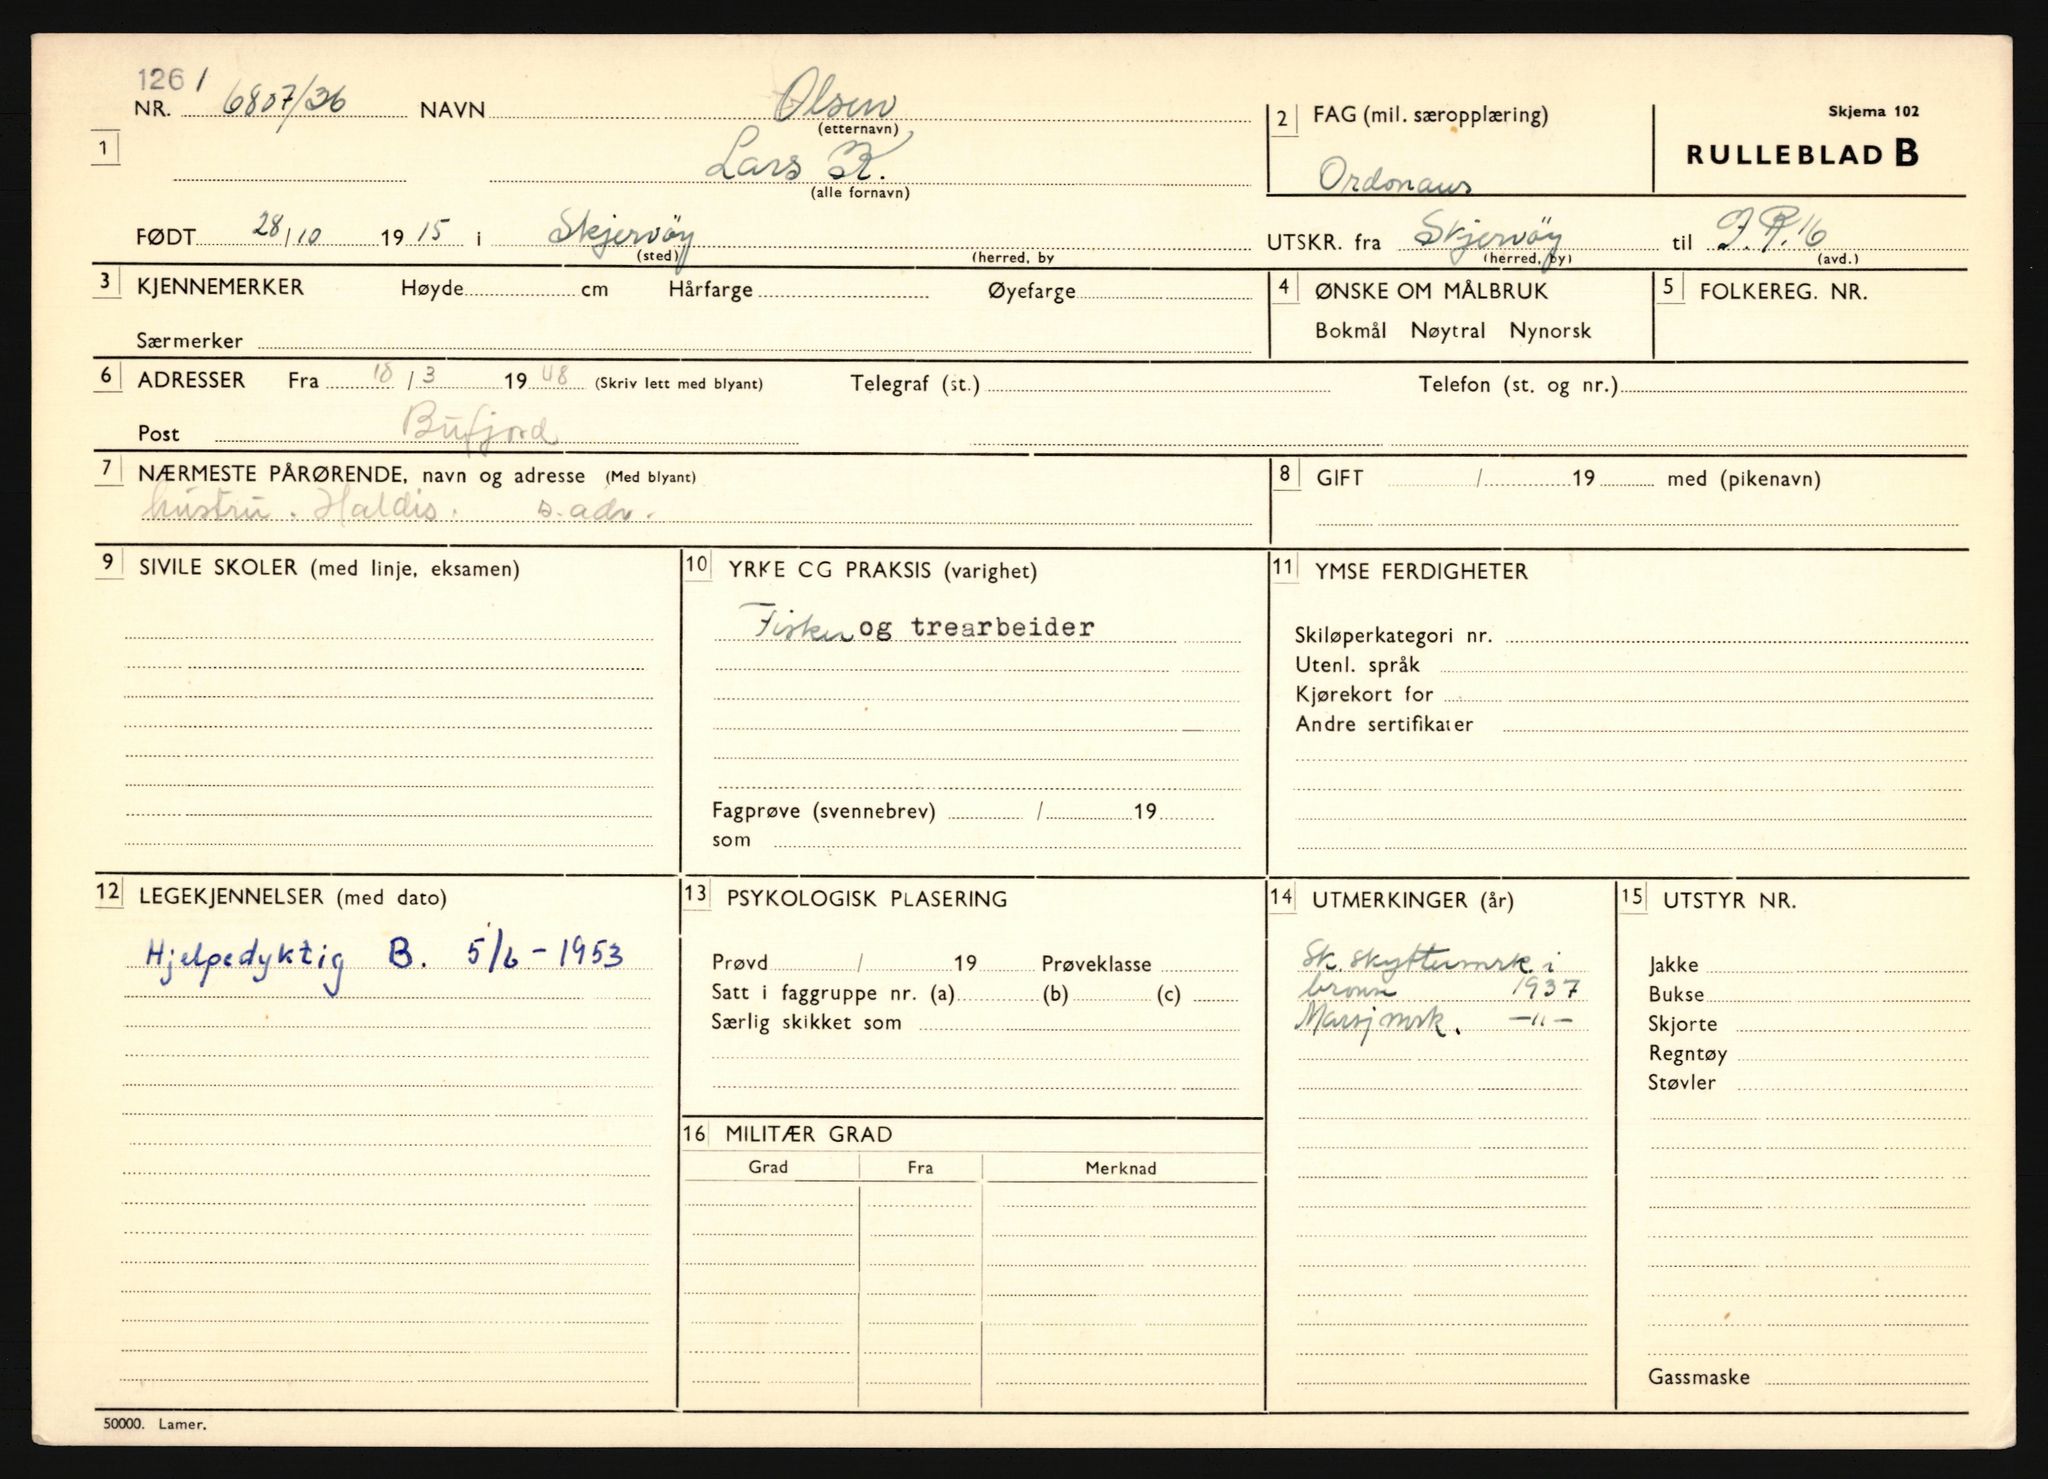 126 /
NR. 6807/36 NAVN Olsen
(etternavn)
2 FAG (mil. særopplæring)
Skjema 102
RULLEBLAD B
1
Lars K.
(alle fornavn)
Ordonans
FØDT 28/10 1915 i Skjervöy
(sted) (herred, by
UTSKR. fra Skjervöy til I.R.16
(herred, by) (avd.)
3 KJENNEMERKER Høyde cm Hårfarge Øyefarge
Særmerker
4 ØNSKE OM MÅLBRUK
Bokmål Nøytral Nynorsk
5 FOLKEREG. NR.
6 ADRESSER Fra 18/3 1948 (Skriv lett med blyant) Telegraf (st.) Telefon (st. og nr.)
Post Bufjord
7 NÆRMESTE PÅRØRENDE, navn og adresse (Med blyant)
hustru. Haldis. s. adr.
8 GIFT / 19 med (pikenavn)
9 SIVILE SKOLER (med linje, eksamen)
10 YRKE CG PRAKSIS (varighet)
Fisker og trearbeider
Fagprøve (svennebrev) / 19
som
11 YMSE FERDIGHETER
Skiløperkategori nr.
Utenl. språk
Kjørekort for
Andre sertifikater
12 LEGEKJENNELSER (med dato)
Hjelpedyktig B. 5/6 - 1953
13 PSYKOLOGISK PLASERING
Prøvd / 19 Prøveklasse
Satt i faggruppe nr. (a) (b) (c)
Særlig skikket som
14 UTMERKINGER (år)
Sk. skyttermrk. i
bronse 1937
Marsjmrk. —"—
15 UTSTYR NR.
Jakke
Bukse
Skjorte
Regntøy
Støvler
Gassmaske
16 MILITÆR GRAD
Grad Fra Merknad
50000. Lamer.